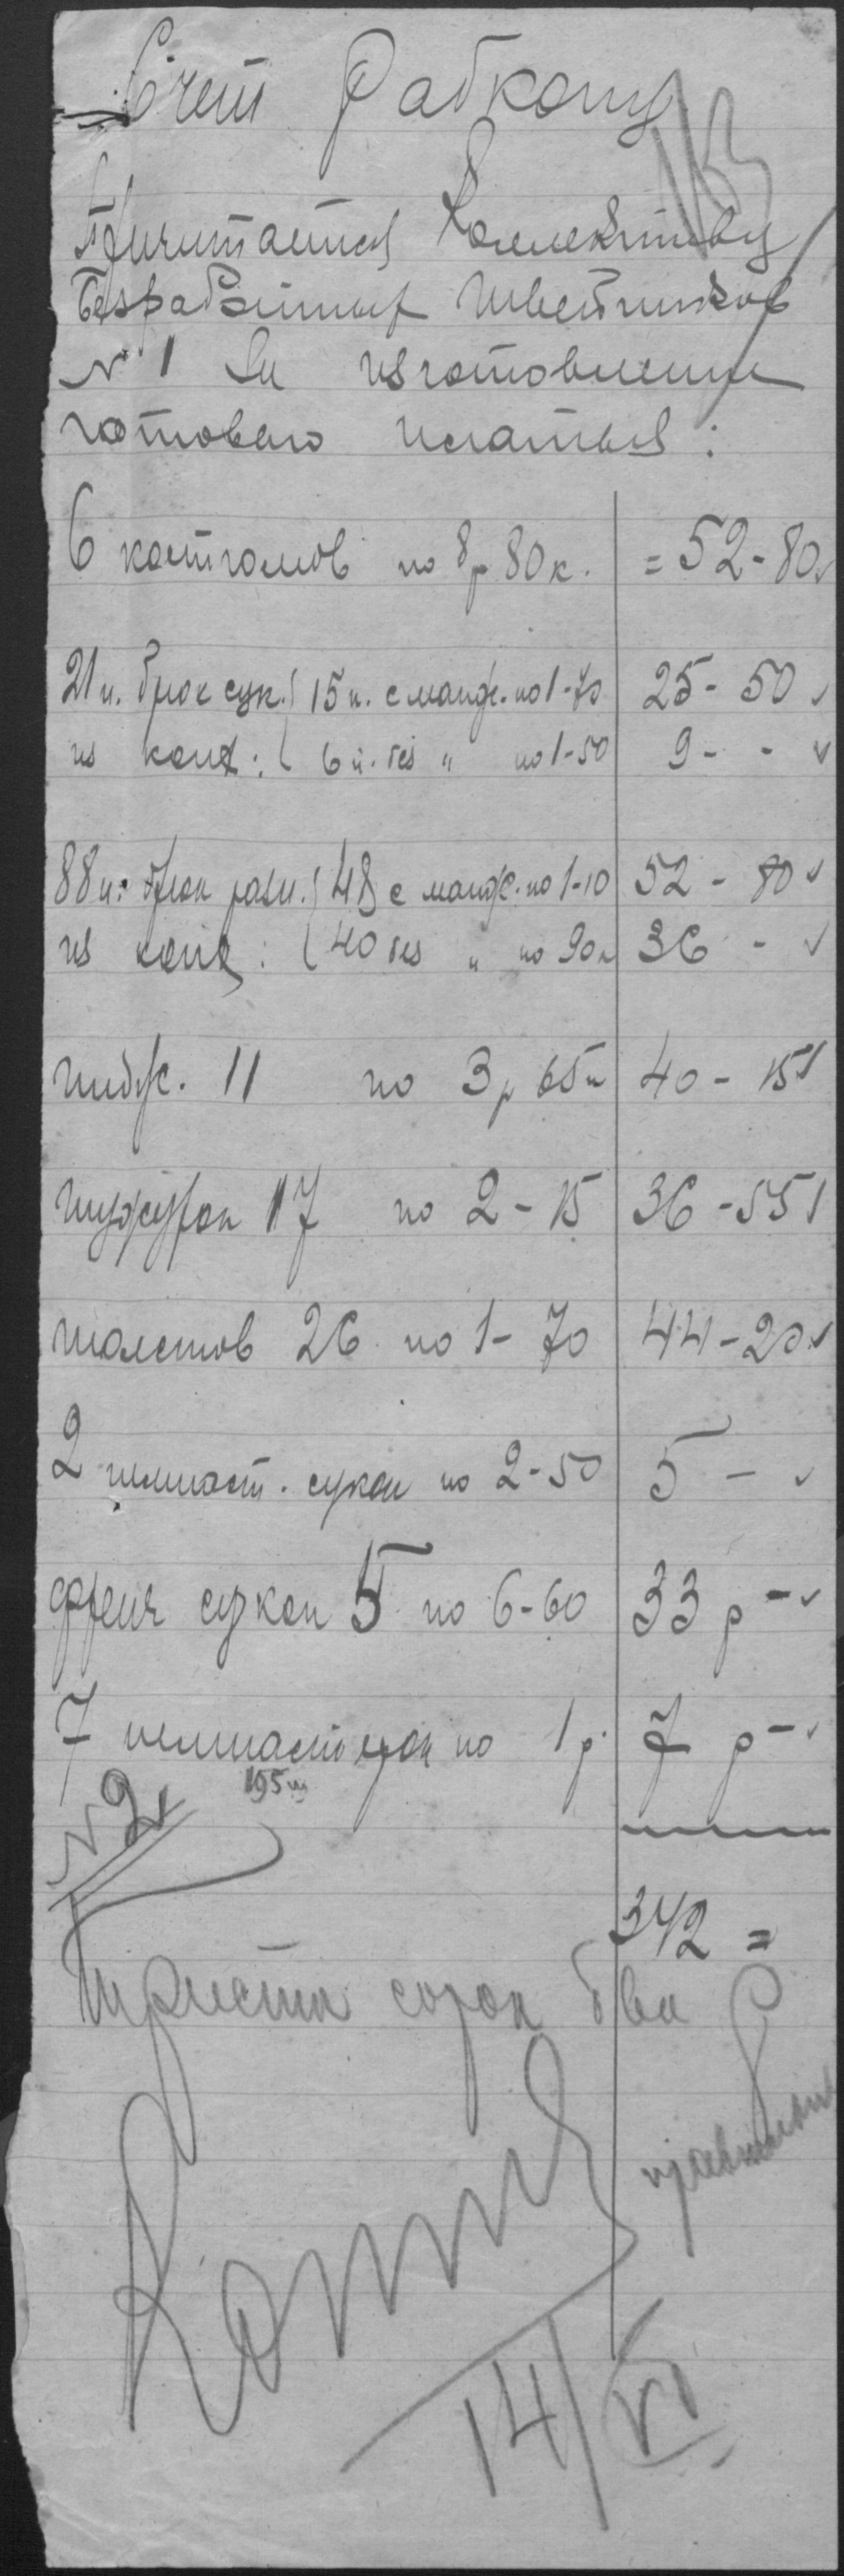 Счет Рабкопу
13
Причитается Коллективу
Безработных Швейников
№ 1 За изготовление
готового платья:
6 костюмов по 8р 80к. = 52-80
21 п. брюк сук. 15 п. с манж. по 1-70 25-50
из коих: 6 п. без " по 1-50 9 - -
88 п. брюк разн. 48 с манж. по 1-10 52-80
из коих: 40 без " по 90к 36 -
пидж. 11 по 3р 65к 40-15
тужурок 17 по 2-15 36-55
толстов 26 по 1-70 44-20
2 гимнаст. сукон по 2-50 5 -
френч сукон 5 по 6-60 33 р -
7 гимнастерок по 1р. 7 р -
195 ш
№ 2
342 =
Триста сорок два р
правильно
14/VI